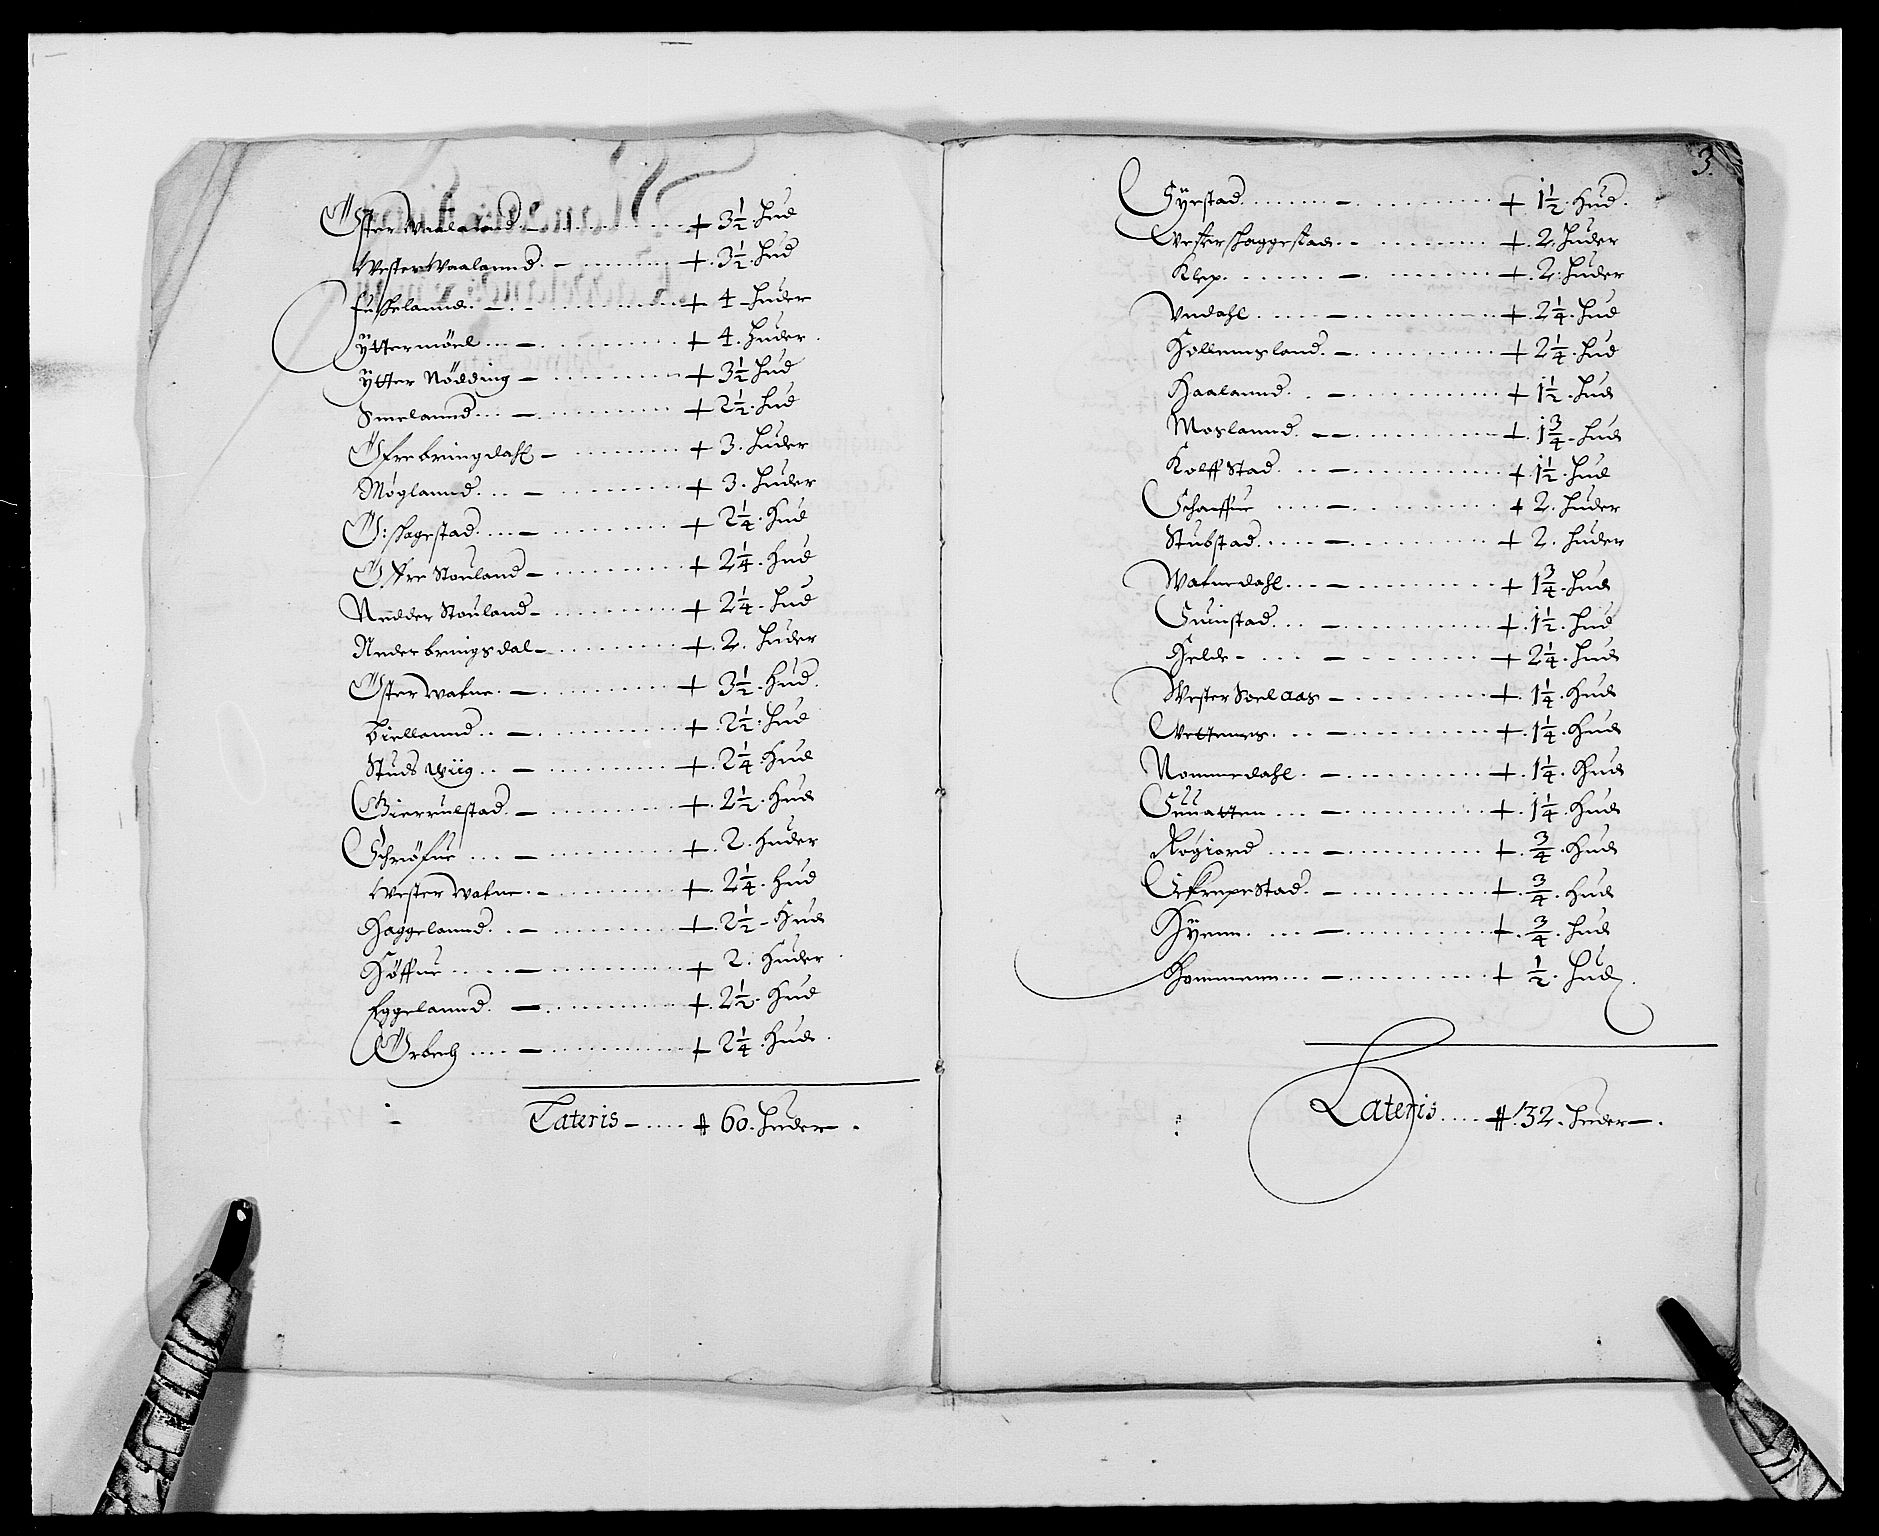 Öster Waalannd. — + 3½. Hud
Wester Waalannd. — + 3½. Hud
Fusselannd. — + 4 Huder
Ÿttermöel — + 4. Huder.
Ÿtter Nödding — + 3½ Hud
Smelannd — + 2½. Hud
Öfrebringdahl — + 3. Huder
Møglannd. — + 3. Huder
Ö: shagestad. — + 2¼. Hud
Öffre Stouland — + 2¼. Hud
Nedder Stouland — + 2¼. Hud
Nederbringsdal — + 2. Huder
Öster watne. — + 3½. Hud.
Biellannd. — + 2½. Hud
Studs wiig — + 2¼. Hud
Gierrulstad. — + 2½. Hud
Schriöfue — + 2. Huder
Wester watne. — + 2¼. Hud
Haggelannd. — + 2½ Hud
Höffue — + 2. Huder
Eggelannd. — + 2½. Hud
Örbech — + 2¼. Hud.
Lateris — # 60. Huder.
3.
Syestad — + 1½. Hud.
Vestershaggestad — + 2. Huder
Klep. — + 2. Huder
Undahl — + 2¼. Hud
Hollemsland. — + 2¼. Hud
Haalannd. — + 1½. Hud
Moslannd. — + 1¾. Hud
Kolff Stad. — + 1½. Hud
Schaffue — + 2. Huder
Stubstad. — + 2. Huder
Watnedahl — + 1¾. Hud
Suinstad. — + 1½. Hud
Helde — + 2¼. Hud
Wester Soelaas — + 1¼. Hud
Vettenes. — + 1¼. Hud
Nommedahl. — + 1¼. Hud
Suuatten — + 1¼. Hud
Røgiord — + ¾. Hud
Schrepestad. — + ¾. Hud
Hÿenn. — + ¾. Hud
Hommenn — + ½. Hud.
Lateris # 32. Huder.